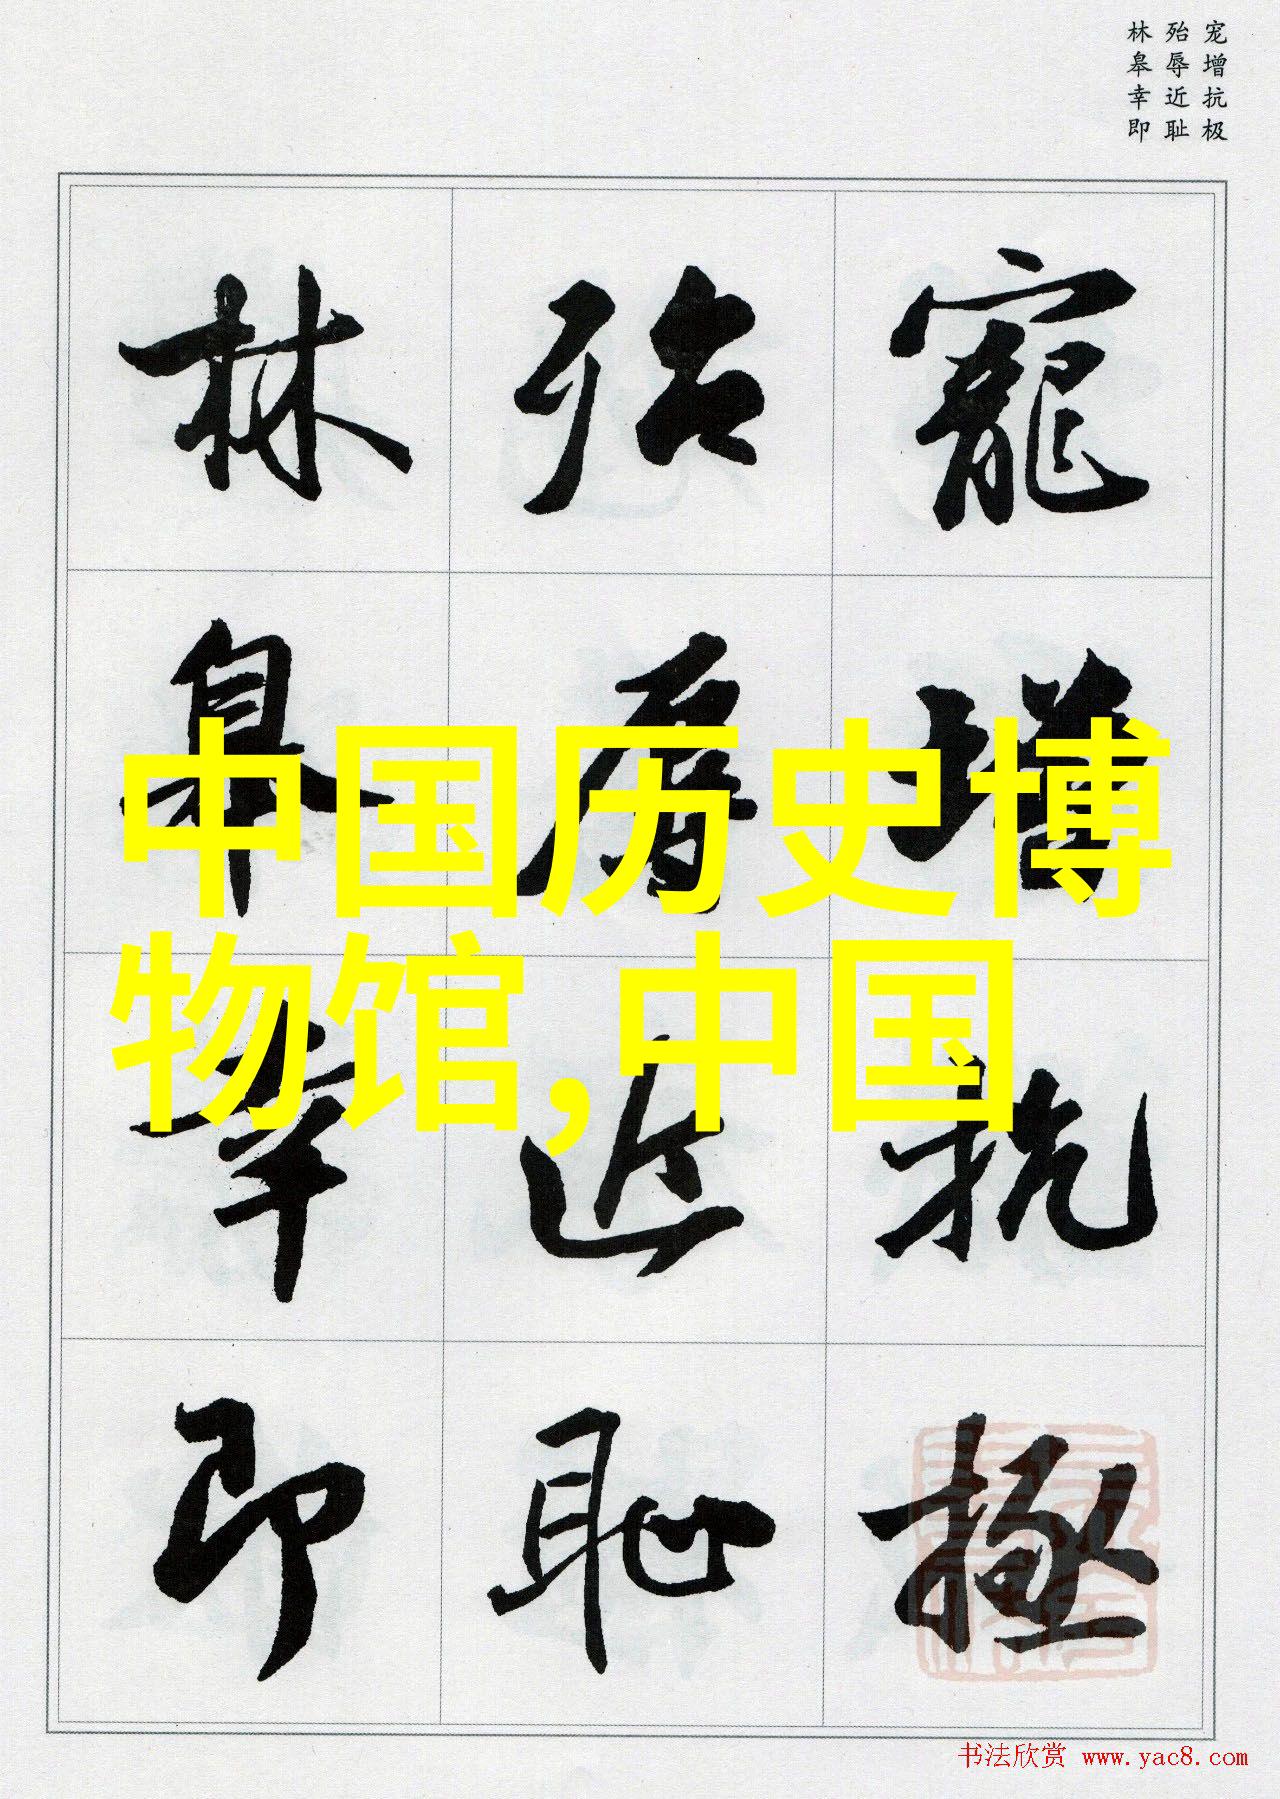 宠增抗极
殆辱近耻
林皋幸即
寵增抗極
殆辱近恥
林皋幸即
中国历史博
物馆,中国
书法欣赏 www.yac8.com